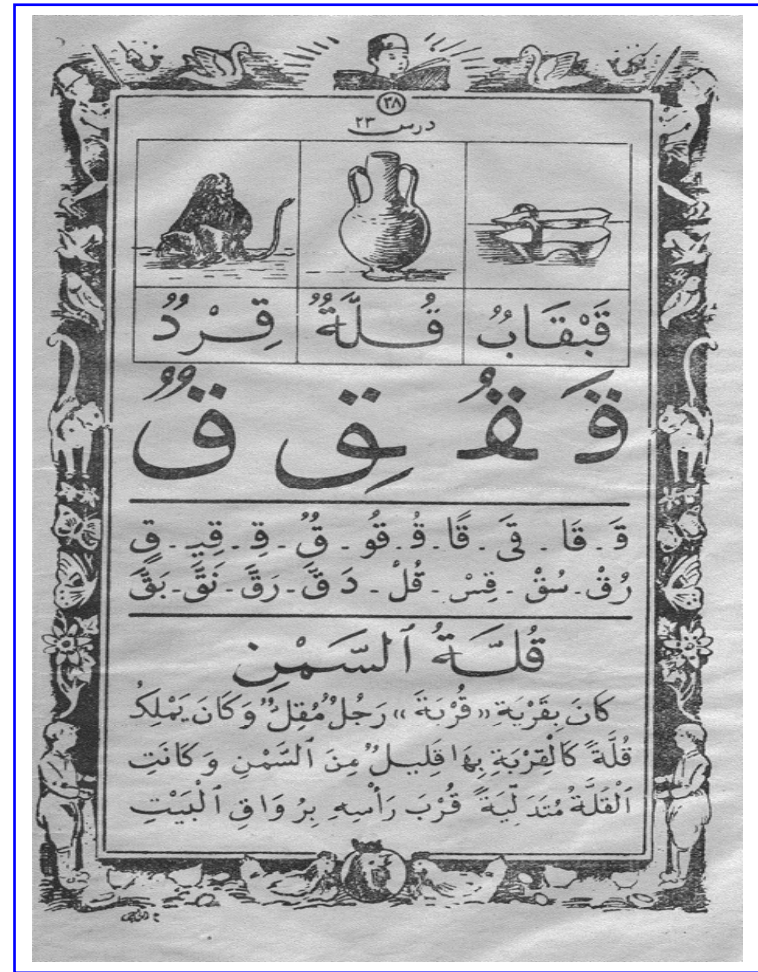 ٣٨
درس ٢٣
قَبْقَابٌ قُلَّةٌ قِرْدٌ
قَ قُ قِ قٌ
قَ - قَا - قَى - قًا - قُ - قُو - قٌ - قِ - قِي - قٍ
رُقْ - سُقْ - قِسْ - قُلْ - دَقَّ - رَقَّ - نَقَّ - بَقَّ
قُلَّةُ ٱلسَّمْنِ
كَانَ بِقَرْيَةِ «قُرْبَةَ» رَجُلٌ مُقِلٌّ وَكَانَ يَمْلِكُ
قُلَّةً كَالْقِرْبَةِ بِهَا قَلِيلٌ مِنَ ٱلسَّمْنِ وَكَانَتِ
ٱلْقُلَّةُ مُتَدَلِّيَةً قُرْبَ رَأْسِهِ بِرُوَاقِ ٱلْبَيْتِ